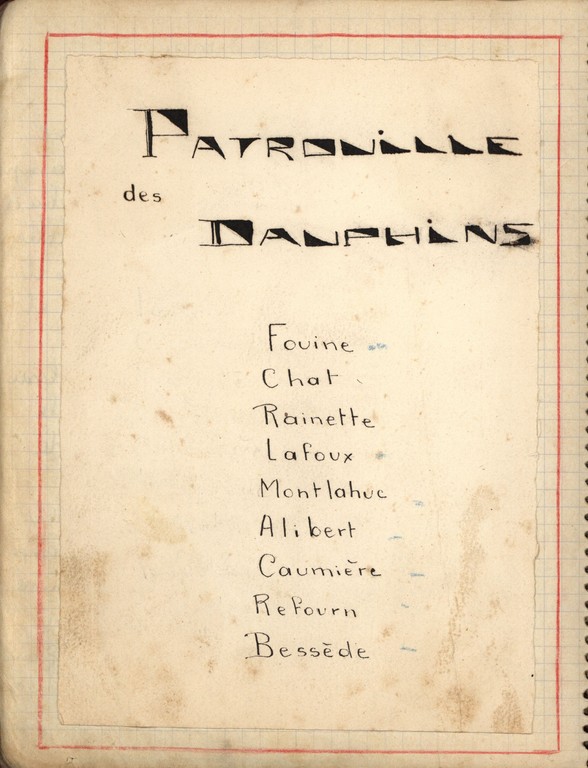 PATROUILLE
des
DAUPHINS
Fouine
Chat
Rainette
Lafoux
Montlahuc
Alibert
Caumière
Refourn
Bessède